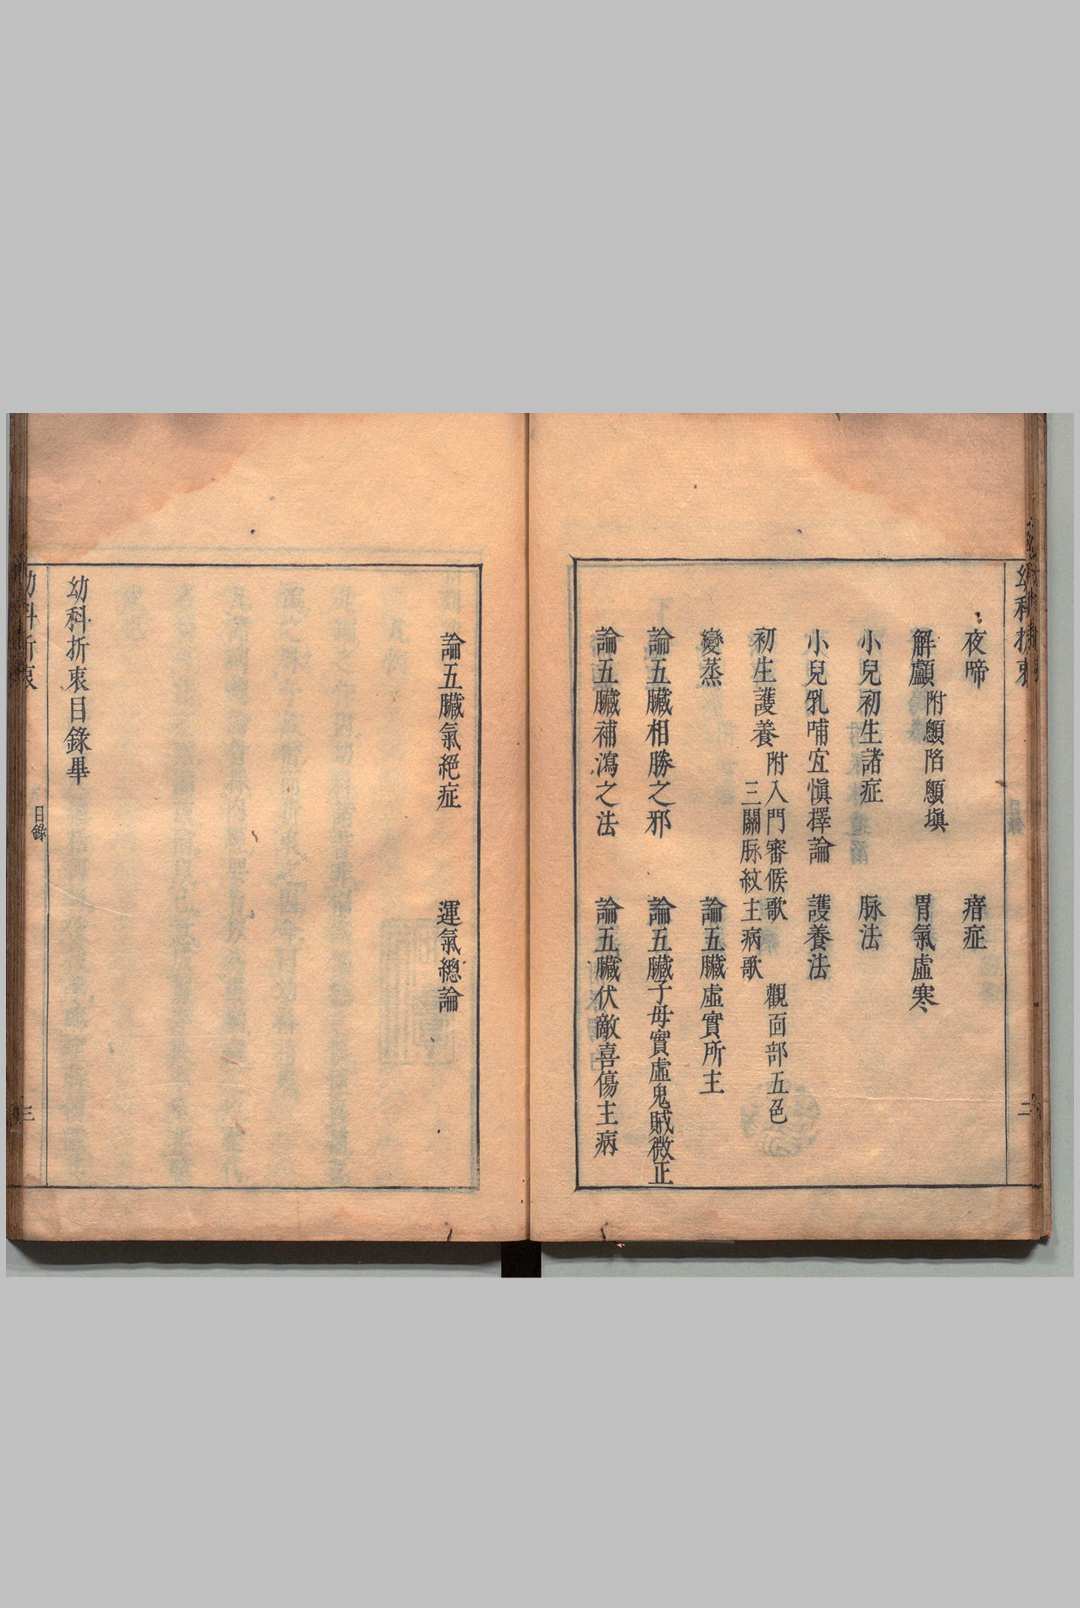 夜啼　瘠症
解顱附顖陷顖塡　胃氣虛寒
小兒初生諸症　脉法
小兒乳哺宜愼擇論　護養法
初生護養附入門審候歌　觀面部五色
三關脉紋主病歌
變蒸　論五臟虛實所主
論五臟相勝之邪　論五臟子母實虛鬼賊微正
論五臟補瀉之法　論五臟伏敵喜傷主病
論五臟氣絕症　運氣總論
幼科折衷目錄畢
幼科折衷
目錄
三